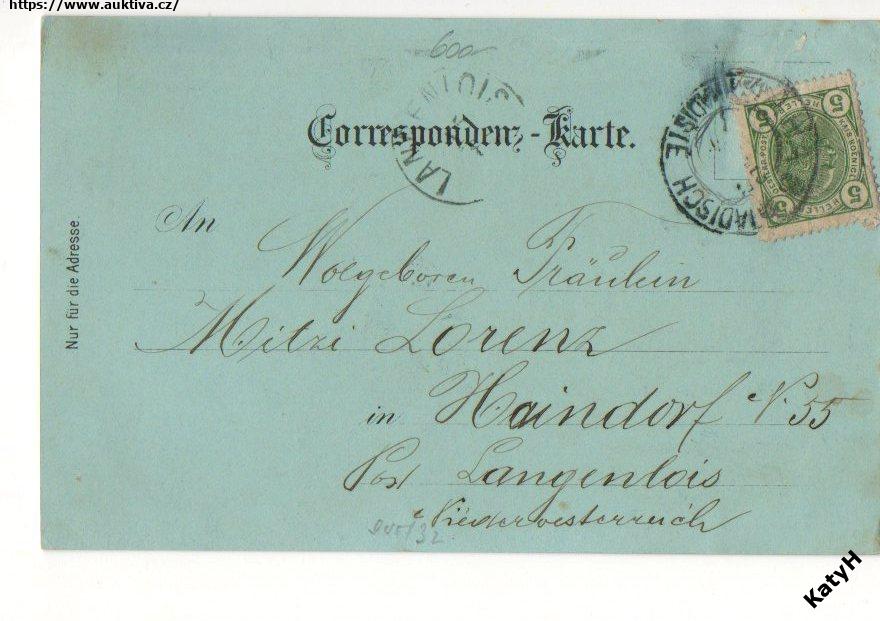 https://www.auktiva.cz/
600
LANGENLOIS
Correspondenz-Karte.
5 5 5 5
HELLER
HELLER
An
Wolgeboren Fräulein
Mitzi Lorenz
in Haindorf N 55
Post Langenlois
Niederoesterreich
Nur für die Adresse.
KatyH